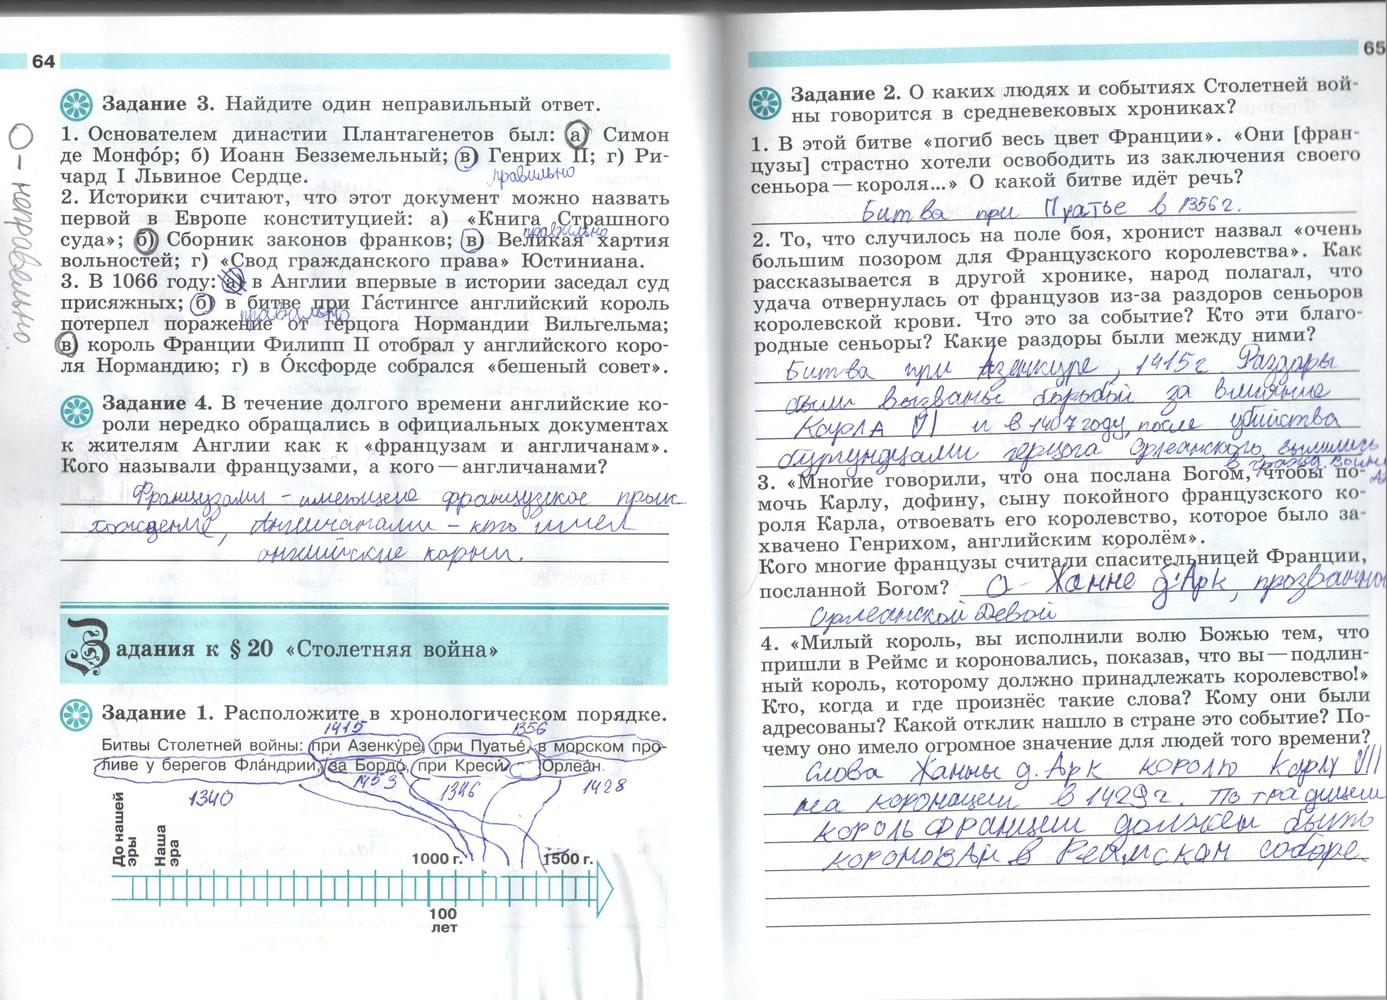 64
Задание 3. Найдите один неправильный ответ.
1. Основателем династии Плантагенетов был: а) Симон
де Монфо́р; б) Иоанн Безземельный; в) Генрих II; г) Ри-
чард I Львиное Сердце.
правильно
2. Историки считают, что этот документ можно назвать
первой в Европе конституцией: а) «Книга Страшного
правильно
суда»; б) Сборник законов франков; в) Великая хартия
вольностей; г) «Свод гражданского права» Юстиниана.
3. В 1066 году: а) в Англии впервые в истории заседал суд
присяжных; б) в битве при Га́стингсе английский король
правильно
потерпел поражение от герцога Нормандии Вильгельма;
в) король Франции Филипп II отобрал у английского коро-
ля Нормандию; г) в О́ксфорде собрался «бешеный совет».
О - неправильно
Задание 4. В течение долгого времени английские ко-
роли нередко обращались в официальных документах
к жителям Англии как к «французам и англичанам».
Кого называли французами, а кого — англичанами?
Французами - имеющего французское проис
хождение, Англичанами - кто имел
английские корни.
Задания к § 20 «Столетняя война»
Задание 1. Расположите в хронологическом порядке.
1415 1356
Битвы Столетней войны: при Азенку́ре, при Пуатье́, в морском про-
ливе у берегов Фла́ндрии, за Бордо́, при Креси́, Орлеа́н.
1340 1453 1346 1428
До нашей эры
Наша эра
1000 г. 1500 г.
100
лет
65
Задание 2. О каких людях и событиях Столетней вой-
ны говорится в средневековых хрониках?
1. В этой битве «погиб весь цвет Франции». «Они [фран-
цузы] страстно хотели освободить из заключения своего
сеньора — короля...» О какой битве идёт речь?
Битва при Пуатье в 1356г.
2. То, что случилось на поле боя, хронист назвал «очень
большим позором для Французского королевства». Как
рассказывается в другой хронике, народ полагал, что
удача отвернулась от французов из-за раздоров сеньоров
королевской крови. Что это за событие? Кто эти благо-
родные сеньоры? Какие раздоры были между ними?
Битва при Азенкуре, 1415г. Раздоры
были вызваны борьбой за влияние
Карла VI и в 1407 году, после убийства
бургундцами герцога Орлеанского, вылились
в гражд. войну
3. «Многие говорили, что она послана Богом, чтобы по-
мочь Карлу, дофину, сыну покойного французского ко-
роля Карла, отвоевать его королевство, которое было за-
хвачено Генрихом, английским королём».
Кого многие французы считали спасительницей Франции,
посланной Богом? О Жанне д'Арк, прозванной
Орлеанской Девой
4. «Милый король, вы исполнили волю Божью тем, что
пришли в Реймс и короновались, показав, что вы — подлин-
ный король, которому должно принадлежать королевство!»
Кто, когда и где произнёс такие слова? Кому они были
адресованы? Какой отклик нашло в стране это событие? По-
чему оно имело огромное значение для людей того времени?
Слова Жанны д.Арк королю Карлу VII
на коронации в 1429г. По традиции
король Франции должен быть
коронован в Реймском соборе.